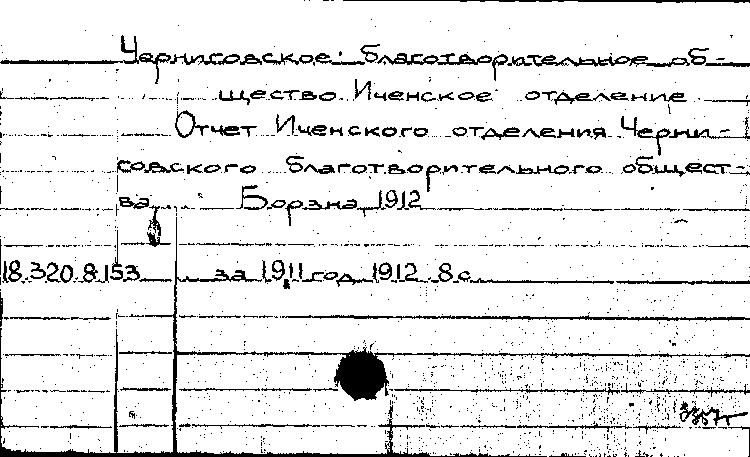 Черниговское благотворительное об-
щество Иченское отделение
Отчет Иченского отделения Черни-
говского благотворительного общест-
ва... Борзна, 1912
18.320.8.153 ... за 1911 год 1912. 8 с.